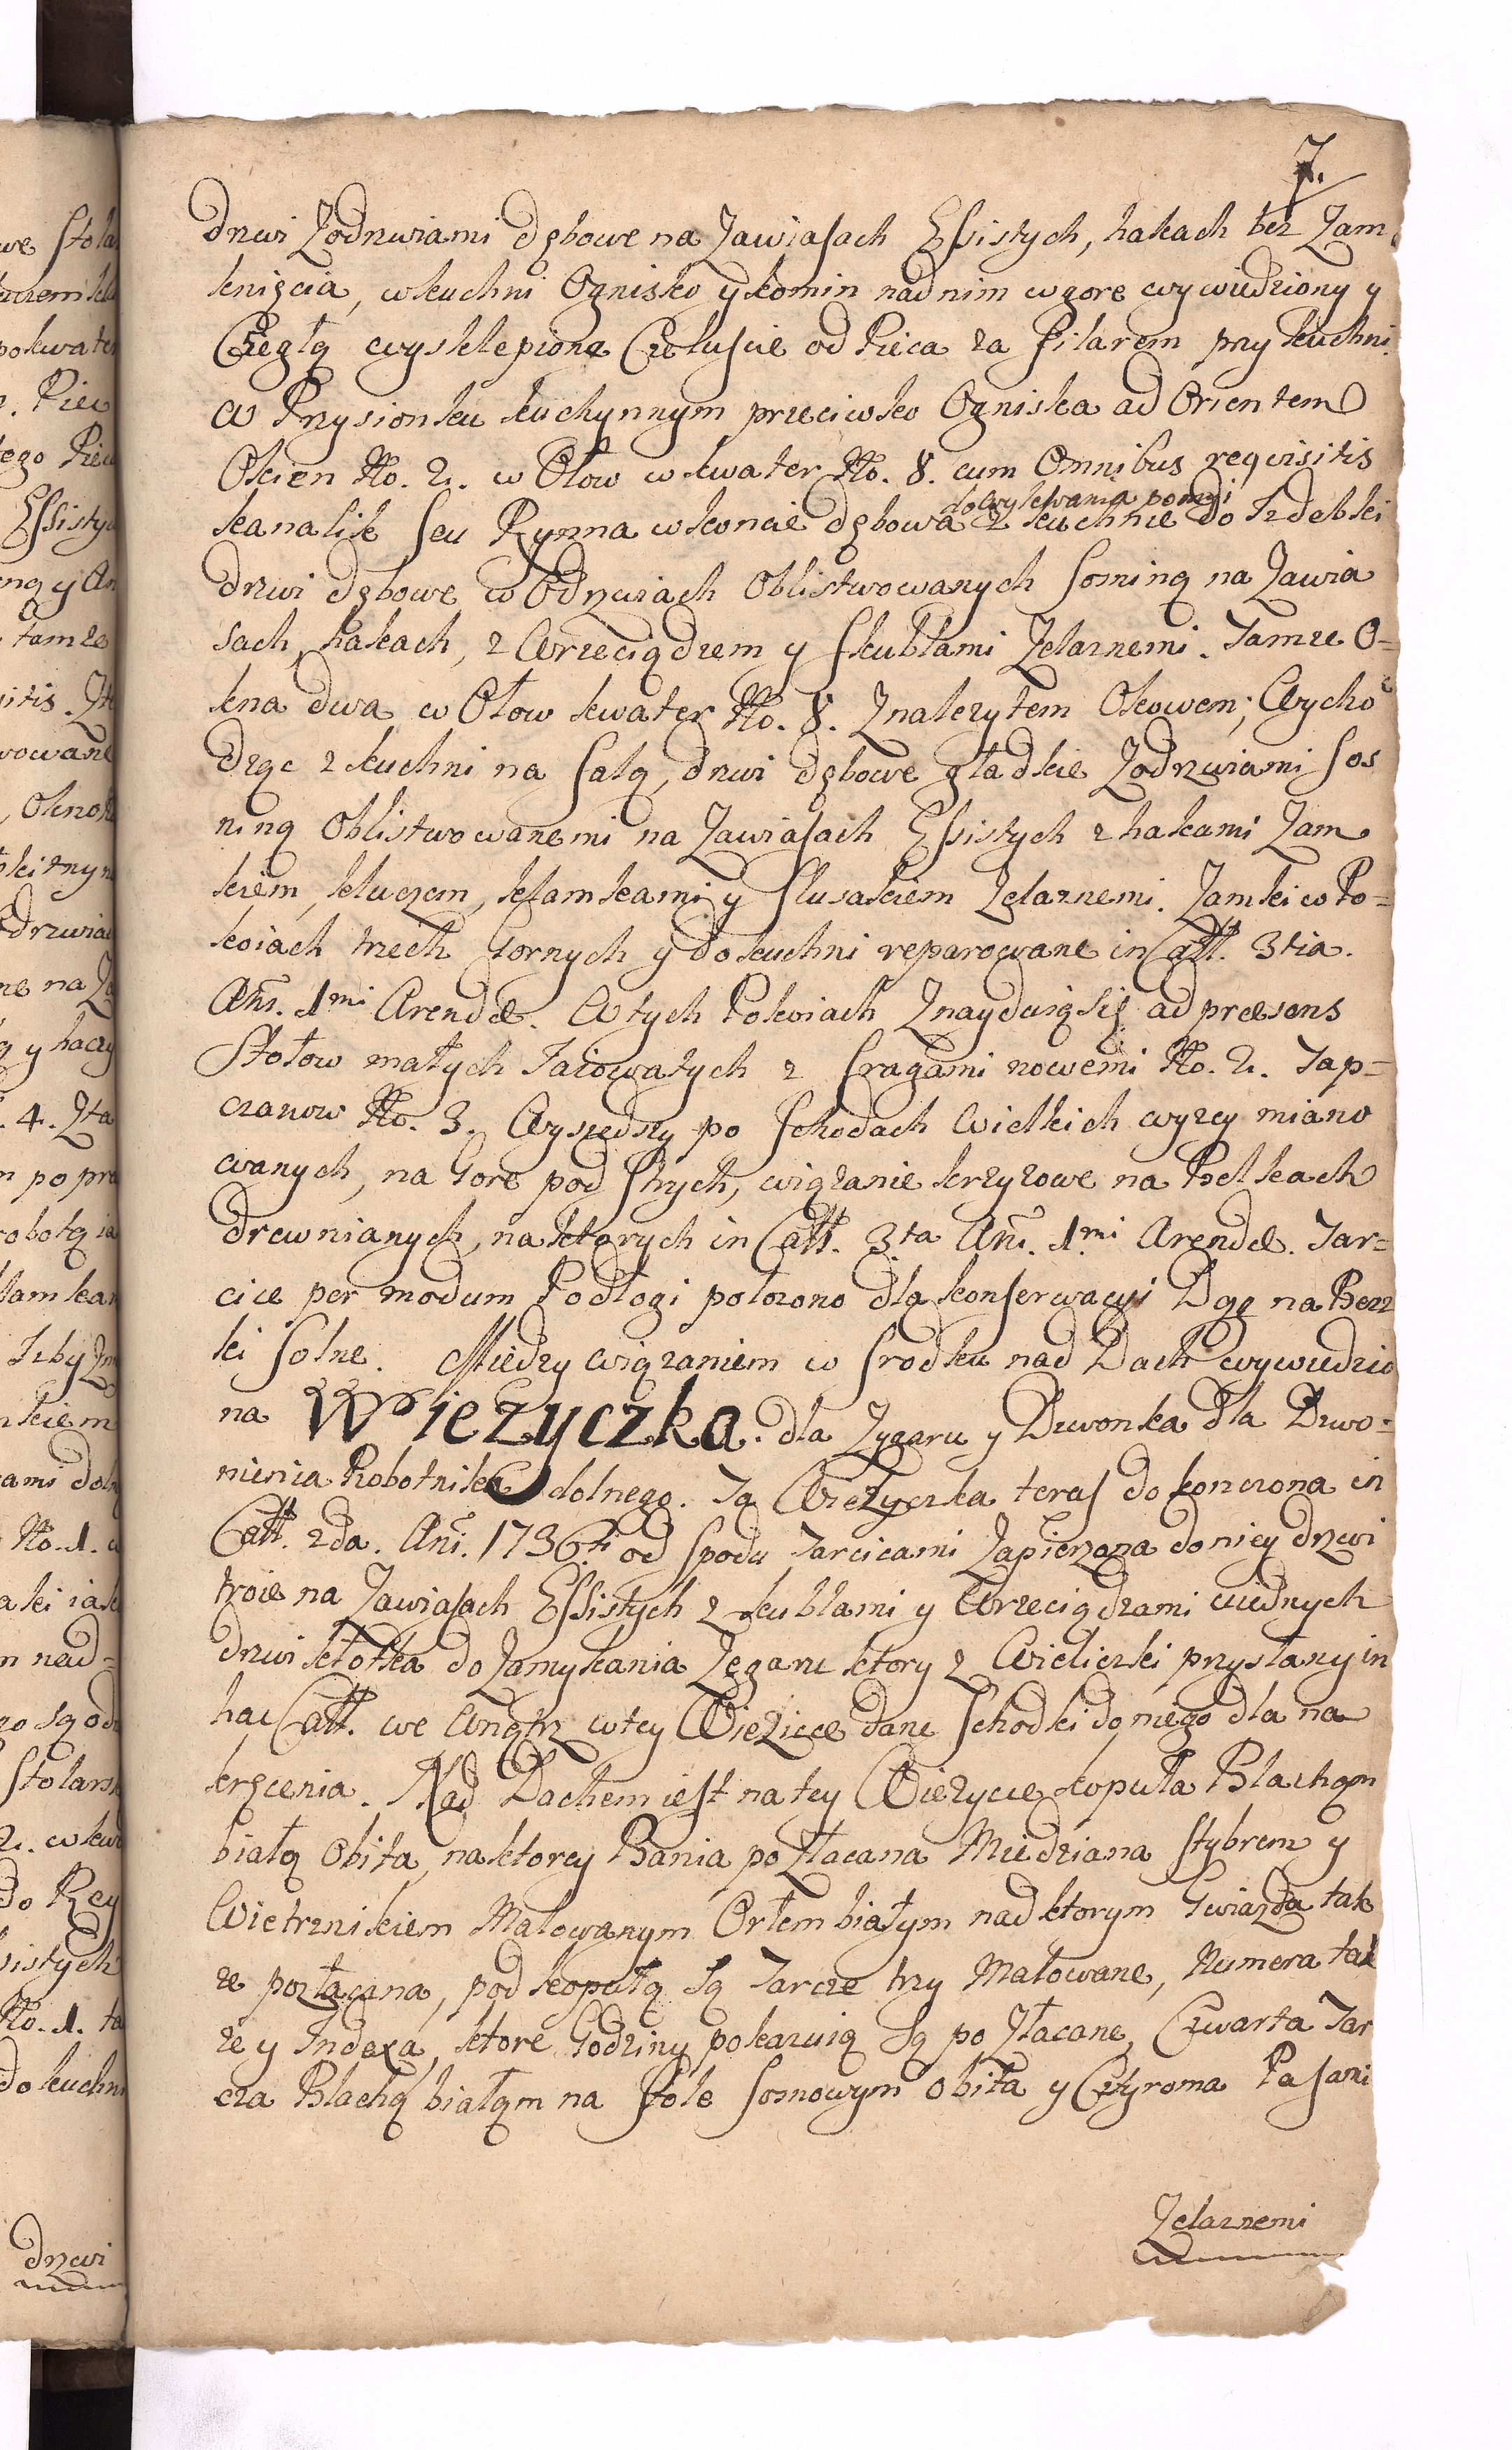 7.
drzwi Zodrzwiami dębowe na Zawiasach Essistych, hakach bez Zam
knięcia, wkuchni Ognisko y komin nad nim wgore wywiedziony y
Cegłą wysklepione Czeluscie od Pieca za filarem przy kuchni.
W Przysionku kuchynnym przeciwko Ogniska ad Orientem
Okien No. 2. w Ołow wkwater No. 8. cum Omnibus reqvisitis
do wylewania pomyi
kanalik seu Rynna wkoncie dębowa z kuchnie do Izdebki
drzwi dębowe w Odrzwiach Oblistwowanych sosniną na Zawia
sach, hakach, z Wrzeciądzem y skublami Zelaznemi. Tamze O-
kna dwa w Ołow kwater No. 8. Znalezytem Okowem; Wycho
dząc z kuchni na salą, drzwi dębowe gładkie Zodrzwiami sos
niną Oblistwowanemi na Zawiasach Essistych z hakami Zam
kiem, kluczem, klamkami y slusakiem Zelaznemi. Zamki w Po-
koiach trzech Gornych y do kuchni reparowane in Catt. 3tia.
Añi. 1mi Arendæ. W tych Pokoiach Znayduią się ad præsens
Stołow małych Taiowatych z sragami nowemi No. 2. Tap-
czanow No. 3. Wyszedszy po schodach Wielkich wyzey miano
wanych, na Gore pod strych, wiązanie krzyzowe na Belkach
drewnianych, na ktorych in Catt. 3.ta Añi. 1.mi Arendæ. Tar-
cice per modum Podłogi połozono dla konserwacyi Dąg na Becz
ki solne. Miedzy wiązaniem w srodku nad Dach wywiedzio
na Wiezyczka. dla Zygaru y Dzwonka dla Dzwo-
nienia Robotnika dolnego. Ta Wiezyczka teras dokonczona in
Catt. 2da. Añi. 1736.ti od spodu Tarcicami Zapierzona do niey drzwi
troie na Zawiasach Essistych z skublami y Wrzeciądzami u iednych
drzwi kłotka do Zamykania Zegaru ktory z Wieliczki przysłany in
hac Catt. we Wnątrz w tey Wiezicce dane schodki do niego dla na
kręcenia. Nad Dachem iest na tey Wiezycce kopuła Blachąm
białą Obita, na ktorey Bania poZłacana Miedziana stybrem y
Wietrznikiem Malowanym Orłem białym nad ktorym Gwiazda tak
ze pozłacana, pod kopułą są Tarcze trzy Malowane, Numera tak
ze y Indexa, ktore Godziny pokazuią są poZłacane, Czwarta Tar
cza Blachą białąm na stole sosnowym obita y Cztyroma Pasami
Zelaznemi